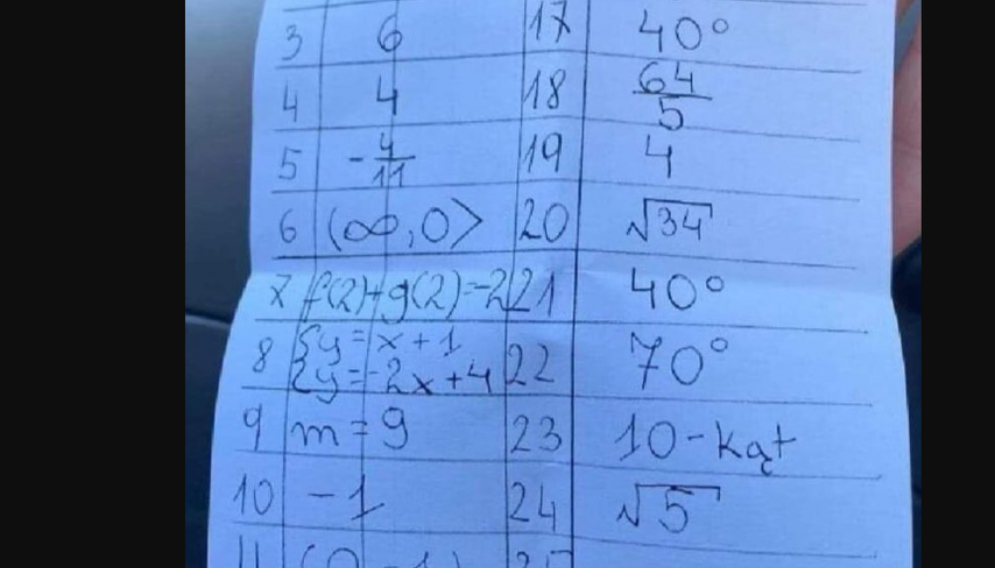 3 6 17 40°
4 4 18 64/5
5 -4/11 19 4
6 (∞,0> 20 √34
7 f(2)+g(2)=-2 21 40°
8 {y=x+1 22 70°
{y=-2x+4
9 m=9 23 10-kąt
10 -1 24 √5
11 (0,-1) 25